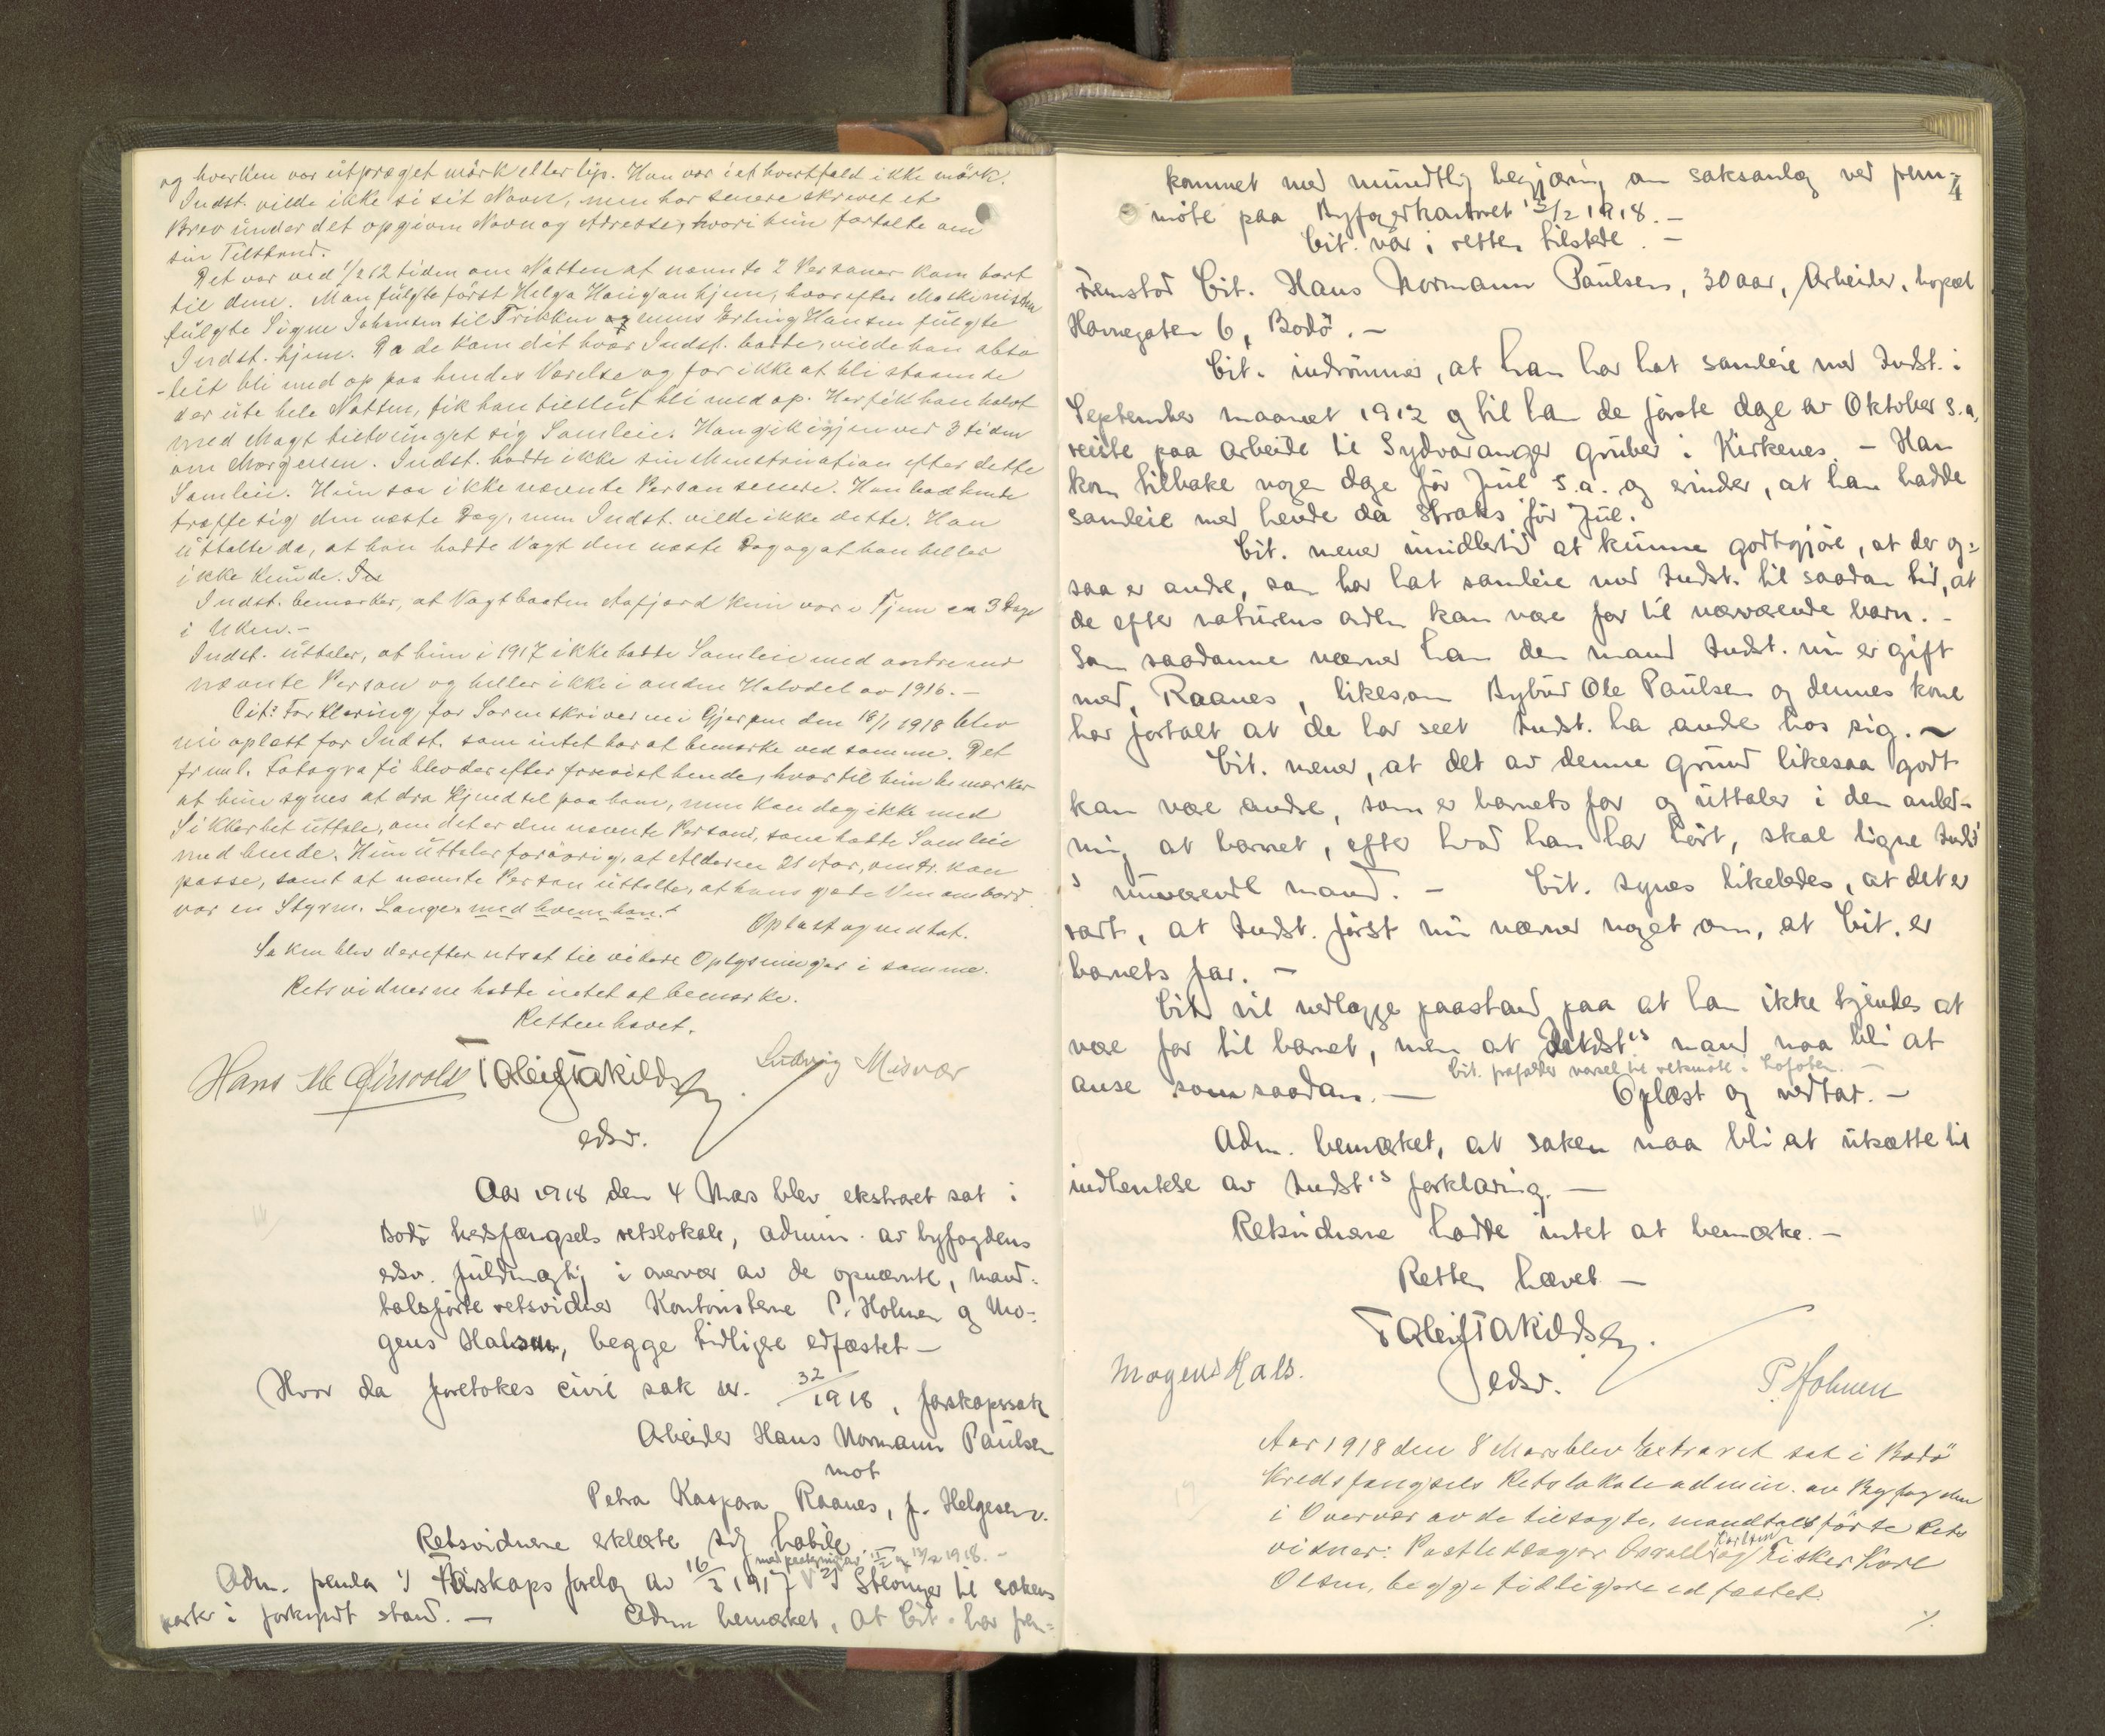 og hverken var utpræget mörk eller lys. Han var i et hvertfald ikke mörk.
Indst. vilde ikke si sit Navn, men har senere skrevet et
Brev under det opgivne Navn og Adresse, hvori hun fortalte om
sin Tilstand.
Det var ved 1/2 12 tiden om Natten at nævnte 2 Personer kom bort
til dem. Man fulgte först Helga Haugan hjem, hvorefter Maskinisten
fulgte Signe Johansen til Trikken og mens Erling Hansen fulgte
Indst. hjem. Da de kom det hvor Indst. bodde, vilde han abso
-lut bli med op paa hendes Værelse og for ikke at bli staaende
der ute hele Natten, fik han tilslut bli med op. Her fik han halvt
med Magt tiltvunget sig Samleie. Han gik igjen ved 3 tiden
om Morgenen. Indst. hadde ikke sin Menstruation efter dette
Samleie. Hun saa ikke nævnte Person senere. Han bad hende
træffe sig den næste Dag, men Indst. vilde ikke dette. Han
uttalte da, at han hadde Vagt den næste Dag og at han heller
ikke kunde.
Indst. bemerker, at Vagtbaaten Aafjord kun var i Tjem ca 3 Dage
i Uken.-
Indst. uttaler, at hun i 1917 ikke hadde Samleie med andre end
nævnte Person og heller ikke i anden Halvdel av 1916.-
Cit.s Forklaring for Sorenskriveren i Gjerpen den 18/1 1918 blev
nu oplæst for Indst. som intet har at bemerke ved samme. Det
freml. Fotografi blev derefter forevist hende, hvortil hun bemerker
at hun synes at dra Kjendsel paa ham, men kan dog ikke med
Sikkerhet uttale, om det er den nævnte Person, som hadde Samleie
med hende. Hun uttaler forövrig, at Alderen 21 Aar, omtr. kan
passe, samt at nævnte Person uttalte, at hans gode Ven ombord
var en Styrm. Lange, med hvem han.
Oplæst og vedtat.
Saken blev derefter utsat til videre Oplysninger i samme.
Retsvidnerne hadde intet at bemerke.
Retten hævet.
Hans
Ludvig Misvær
edsv.
Aar 1918 den 4 Mars blev ekstraret sat i
Bodö kredsfængsels retslokale, admin. av byfogdens
edsv. fuldmægtig i overvær av de opnævnte, mand-
talsförte retsvidner Kontoristene P. Holmen og Mo-
gens Halsen, begge tidligere edfæstet -
Hvor da foretokes civil sak nr. 32/1918, farskapssak
Arbeider Hans Normann Paulsen
mot
Petra Kaspara Raanes, f. Helgesen.
Retsvidnene erklærte sig habile
med paategninger
Adm. femla 1) Farskaps forelæg av 16/3 1917 til sakens
parter i forkyndt stand. - Adm bemerket, at Cit. har frem-
4
kommet med mundtlig begjæring om saksanlæg ved frem-
möte paa Byfogdkontoret 13/2 1918. -
Cit. var i retten tilstede. -
Fremstod Cit. Hans Normann Paulsen, 30 aar, Arbeider, bopæl
Havnegaten 6, Bodö. -
Cit. indrömmer, at han har hat samleie med Indst. i
September maanet 1912 og til han de förste dage av Oktober s.a.
reiste paa arbeide til Sydvaranger gruber i Kirkenes. - Han
kom tilbake nogen dage för Jul s.a. og erindrer, at han hadde
samleie med hende da straks för Jul.
Cit. mener imidlertid at kunne godtgjöre, at der og-
saa er andre, som har hat samleie med Indst. til saadan tid, at
de efter naturens orden kan være far til nærværende barn. -
Som saadanne nævner han den mand Indst. nu er gift
med, Raanes, likesom Bybud Ole Paulsen og dennes kone
har fortalt at de har seet Indst. ha andre hos sig. -
Cit. mener, at det av denne grund likesaa godt
kan være andre, som er barnets far og uttaler i den anled-
ning at barnet, efter hvad han har hört, skal ligne Indst
's nuværende mand. - Cit. synes likeledes, at det er
rart, at Indst. först nu nævner noget om, at Cit. er
barnets far. -
Cit vil nedlægge paastand paa at han ikke kjendes at
være far til barnet, men at Indst's mand maa bli at
Cit. frafalder varsel til retsmöte i Lofoten. -
anse som saadan. - Oplæst og vedtat. -
Adm. bemerket, at saken maa bli at utsætte til
indhentelse av Indst's forklaring. -
Retsvidnene hadde intet at bemerke. -
Retten hævet -
edsv.
Mogens Hals.
P. Holmen
Aar 1918 den 8 Mars blev Extraret sat i Bodö
Kredsfængsels Retslokale admin. av Byfogden
i Overvær av de tilsagte, mandtalsförte Rets
vidner: Karlsen og Fisker Kare
Olsen, begge tidligere edfæstet.